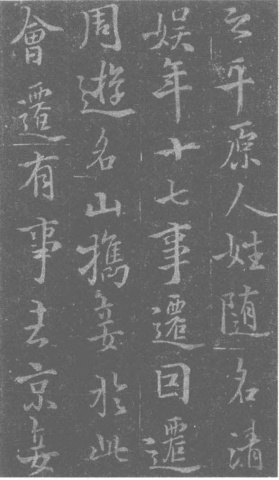 云平原人姓随名清
娱年十七事遷回遷
周遊名山携妾於此
會遷有事去京妾